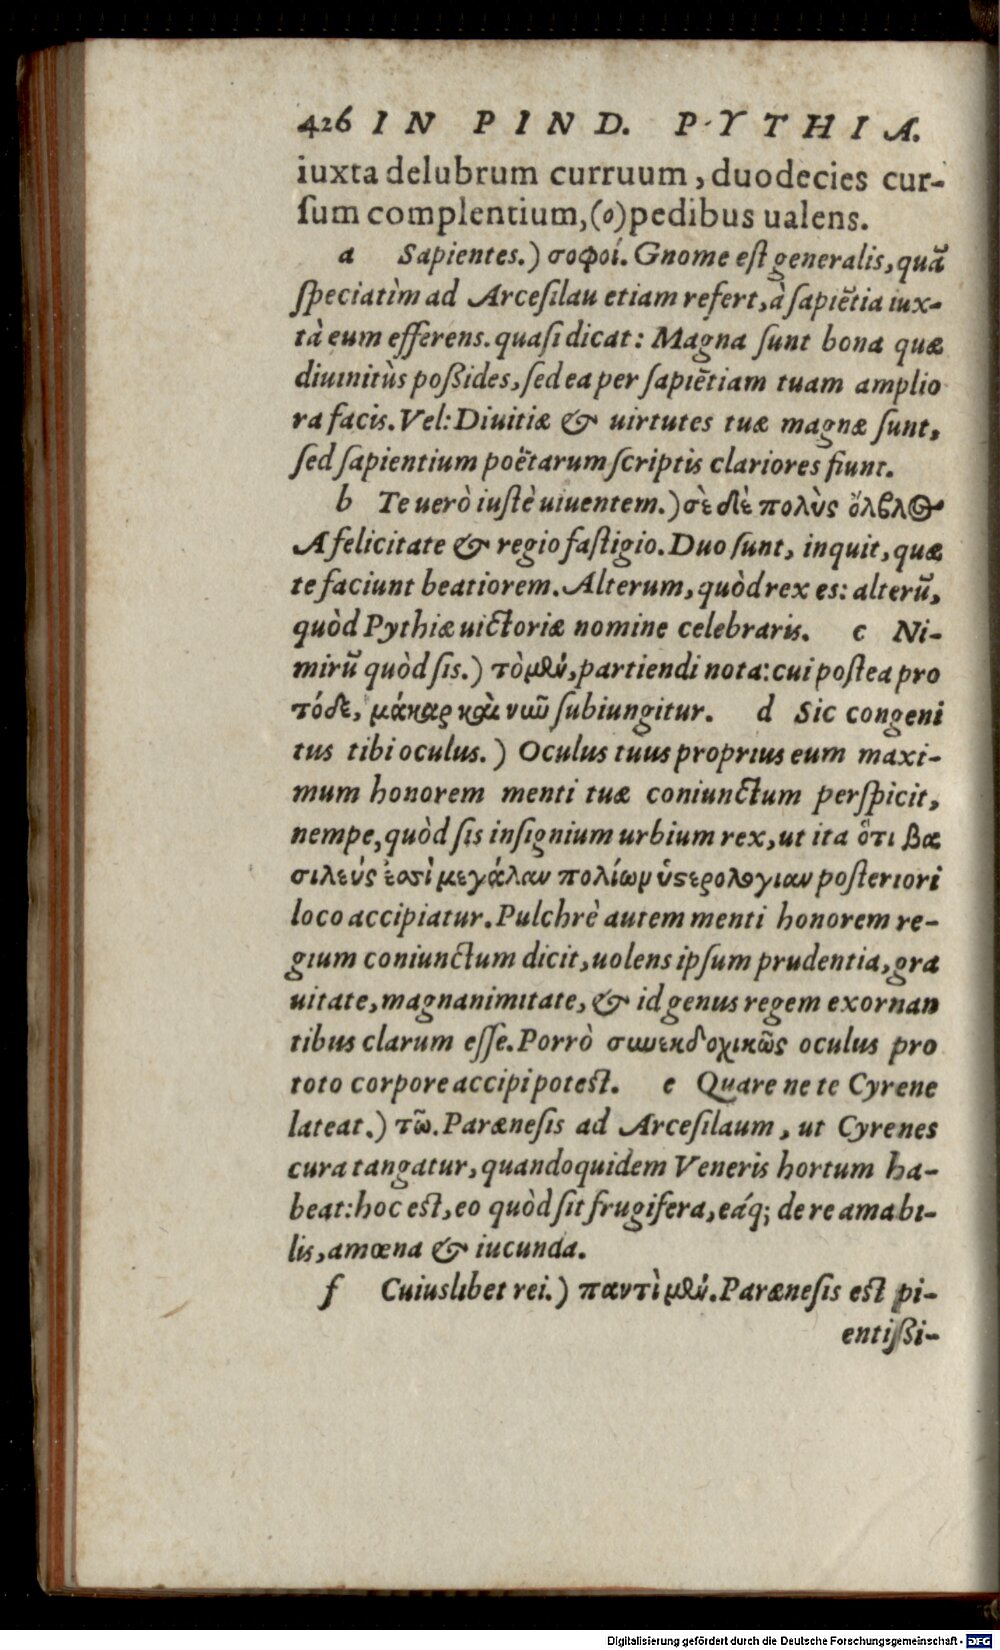 426 IN PIND. PYTHIA.
iuxta delubrum curruum, duodecies cur-
ſum complentium, (o) pedibus ualens.
a Sapientes.) σοφοί. Gnome eſt generalis, quã
ſpeciatìm ad Arceſilau etiam refert, à ſapiẽtia iux-
tà eum efferens. quaſi dicat: Magna ſunt bona quæ
diuinitùs poßides, ſed ea per ſapiẽtiam tuam amplio
ra facis. Vel: Diuitiæ & uirtutes tuæ magnæ ſunt,
ſed ſapientium poëtarum ſcriptis clariores fiunt.
b Te uerò iuſtè uiuentem.) σὲ δὲ πολὺς ὄλβλος
A felicitate & regio faſtigio. Duo ſunt, inquit, quæ
te faciunt beatiorem. Alterum, quòd rex es: alterũ,
quòd Pythiæ uictoriæ nomine celebraris. c Ni-
mirũ quòd ſis.) τὸ μὲν, partiendi nota: cui poſtea pro
τόδε, μάκαρ καὶ νῦν ſubiungitur. d Sic congeni
tus tibi oculus.) Oculus tuus proprius eum maxi-
mum honorem menti tuæ coniunctum perſpicit,
nempe, quòd ſis inſignium urbium rex, ut ita ὅτι βα
σιλεύς ἐσσὶ μεγάλαν πολίωμ ὑστερολογιαν poſteriori
loco accipiatur. Pulchrè autem menti honorem re-
gium coniunctum dicit, uolens ipſum prudentia, gra
uitate, magnanimitate, & id genus regem exornan
tibus clarum eſſe. Porrò συνεκδοχικῶς oculus pro
toto corpore accipi poteſt. e Quare ne te Cyrene
lateat.) τῶ. Paræneſis ad Arceſilaum, ut Cyrenes
cura tangatur, quandoquidem Veneris hortum ha-
beat: hoc eſt, eo quòd ſit frugifera, eáq; de re amabi-
lis, amœna & iucunda.
f Cuiuslibet rei.) παντὶ μὲν. Paræneſis eſt pi-
entißi-
Digitalisierung gefördert durch die Deutsche Forschungsgemeinschaft - DFG